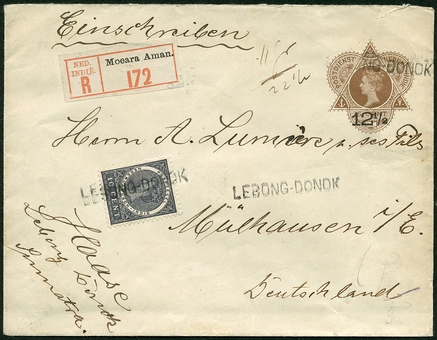 Einschreiben
NED. INDIË.
R
Moeara Aman.
172
22½
LEBONG-DONOK
12 1/2
Herrn A. Lumière & ses Fils
LEBONG-DONOK
LEBONG-DONOK
CENT
Mülhausen i/E.
Deutschland
Haase
Lebong Donok
Sumatra.